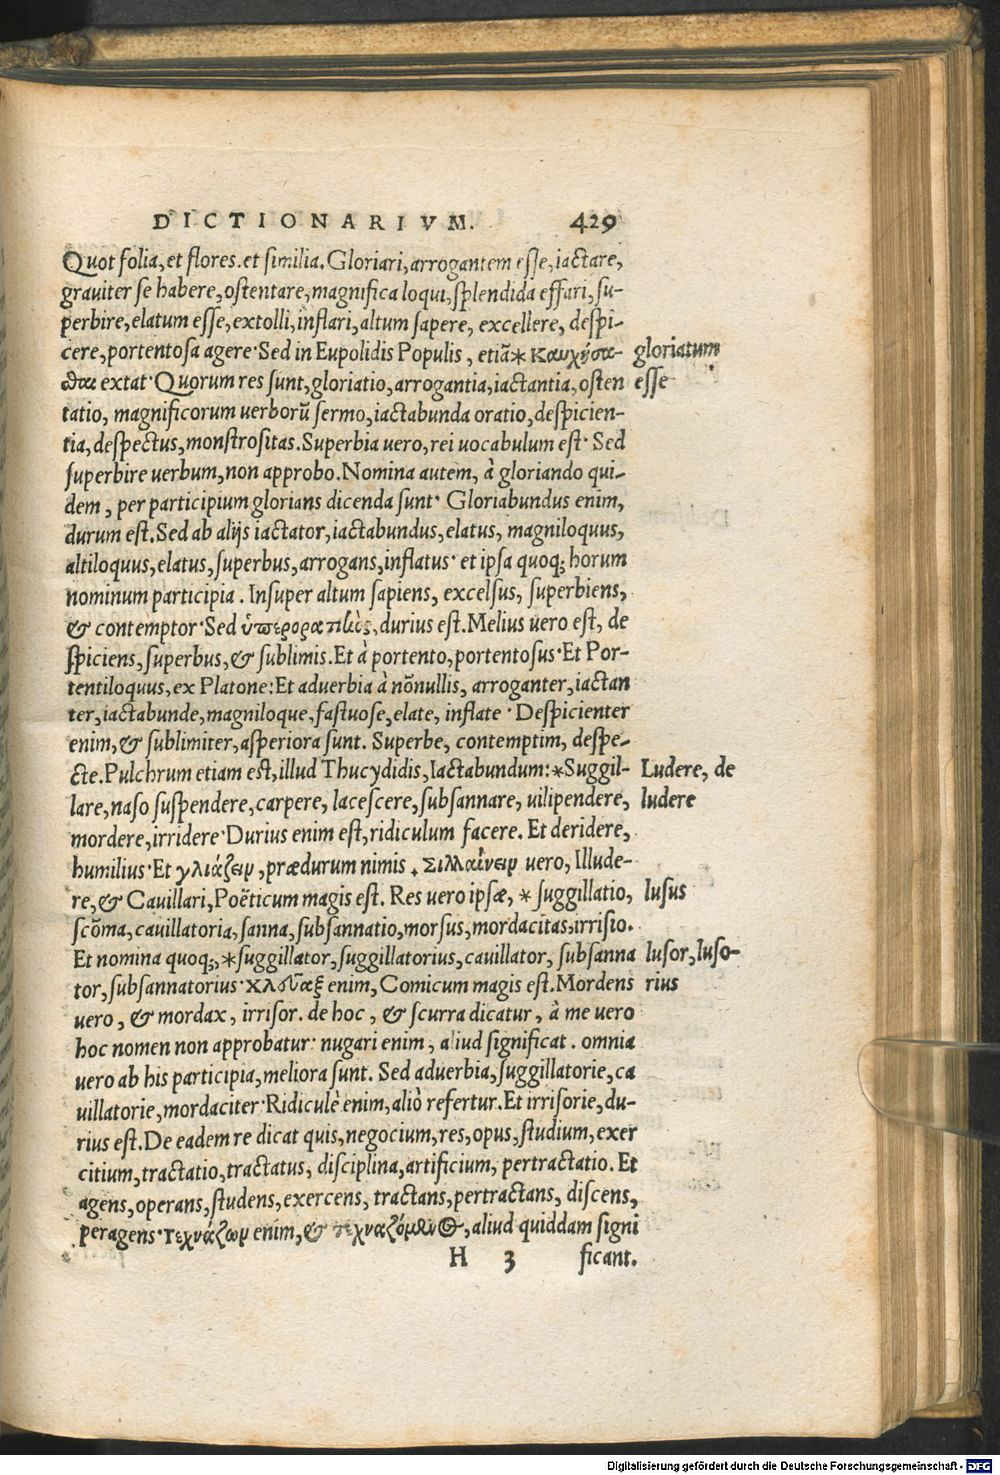 DICTIONARIVM. 429
Quot folia, et flores. et similia. Gloriari, arrogantem esse, iactare,
grauiter se habere, ostentare, magnifica loqui, splendida effari, su-
perbire, elatum esse, extolli, inflari, altum sapere, excellere, despi-
cere, portentosa agere· Sed in Eupolidis Populis, etiã * καυχήσα- gloriatum
σθαι extat· Quorum res sunt, gloriatio, arrogantia, iactantia, osten esse
tatio, magnificorum uerborũ sermo, iactabunda oratio, despicien-
tia, despectus, monstrositas. Superbia uero, rei uocabulum est· Sed
superbire uerbum, non approbo. Nomina autem, à gloriando qui-
dem, per participium glorians dicenda sunt· Gloriabundus enim,
durum est. Sed ab alijs iactator, iactabundus, elatus, magniloquus,
altiloquus, elatus, superbus, arrogans, inflatus· et ipsa quoq; horum
nominum participia. Insuper altum sapiens, excelsus, superbiens,
& contemptor· Sed ὑπεροραπικὸς, durius est. Melius uero est, de
spiciens, superbus, & sublimis. Et à portento, portentosus· Et Por-
tentiloquus, ex Platone: Et aduerbia à nõnullis, arroganter, iactan
ter, iactabunde, magniloque, fastuose, elate, inflate· Despicienter
enim, & sublimiter, asperiora sunt. Superbe, contemptim, despe-
cte. Pulchrum etiam est, illud Thucydidis, Iactabundum: * Suggil- Ludere, de
lare, naso suspendere, carpere, lacescere, subsannare, uilipendere, ludere
mordere, irridere· Durius enim est, ridiculum facere. Et deridere,
humilius· Et γλιάζειν, prædurum nimis. Σιλλαίνειν uero, Illude-
re, & Cauillari, Poëticum magis est. Res uero ipsæ, * suggillatio, lusus
scõma, cauillatoria, sanna, subsannatio, morsus, mordacitas, irrisio.
Et nomina quoq;, * suggillator, suggillatorius, cauillator, subsanna lusor, luso-
tor, subsannatorius· χλσύαξ enim, Comicum magis est. Mordens rius
uero, & mordax, irrisor. de hoc, & scurra dicatur, à me uero
hoc nomen non approbatur· nugari enim, aliud significat. omnia
uero ab his participia, meliora sunt. Sed aduerbia, suggillatorie, ca
uillatorie, mordaciter· Ridiculè enim, aliò refertur. Et irrisorie, du-
rius est. De eadem re dicat quis, negocium, res, opus, studium, exer
citium, tractatio, tractatus, disciplina, artificium, pertractatio. Et
agens, operans, studens, exercens, tractans, pertractans, discens,
peragens· τεχνάζων enim, & τεχναζόμενος, aliud quiddam signi
H 3 ficant.
Digitalisierung gefördert durch die Deutsche Forschungsgemeinschaft - DFG